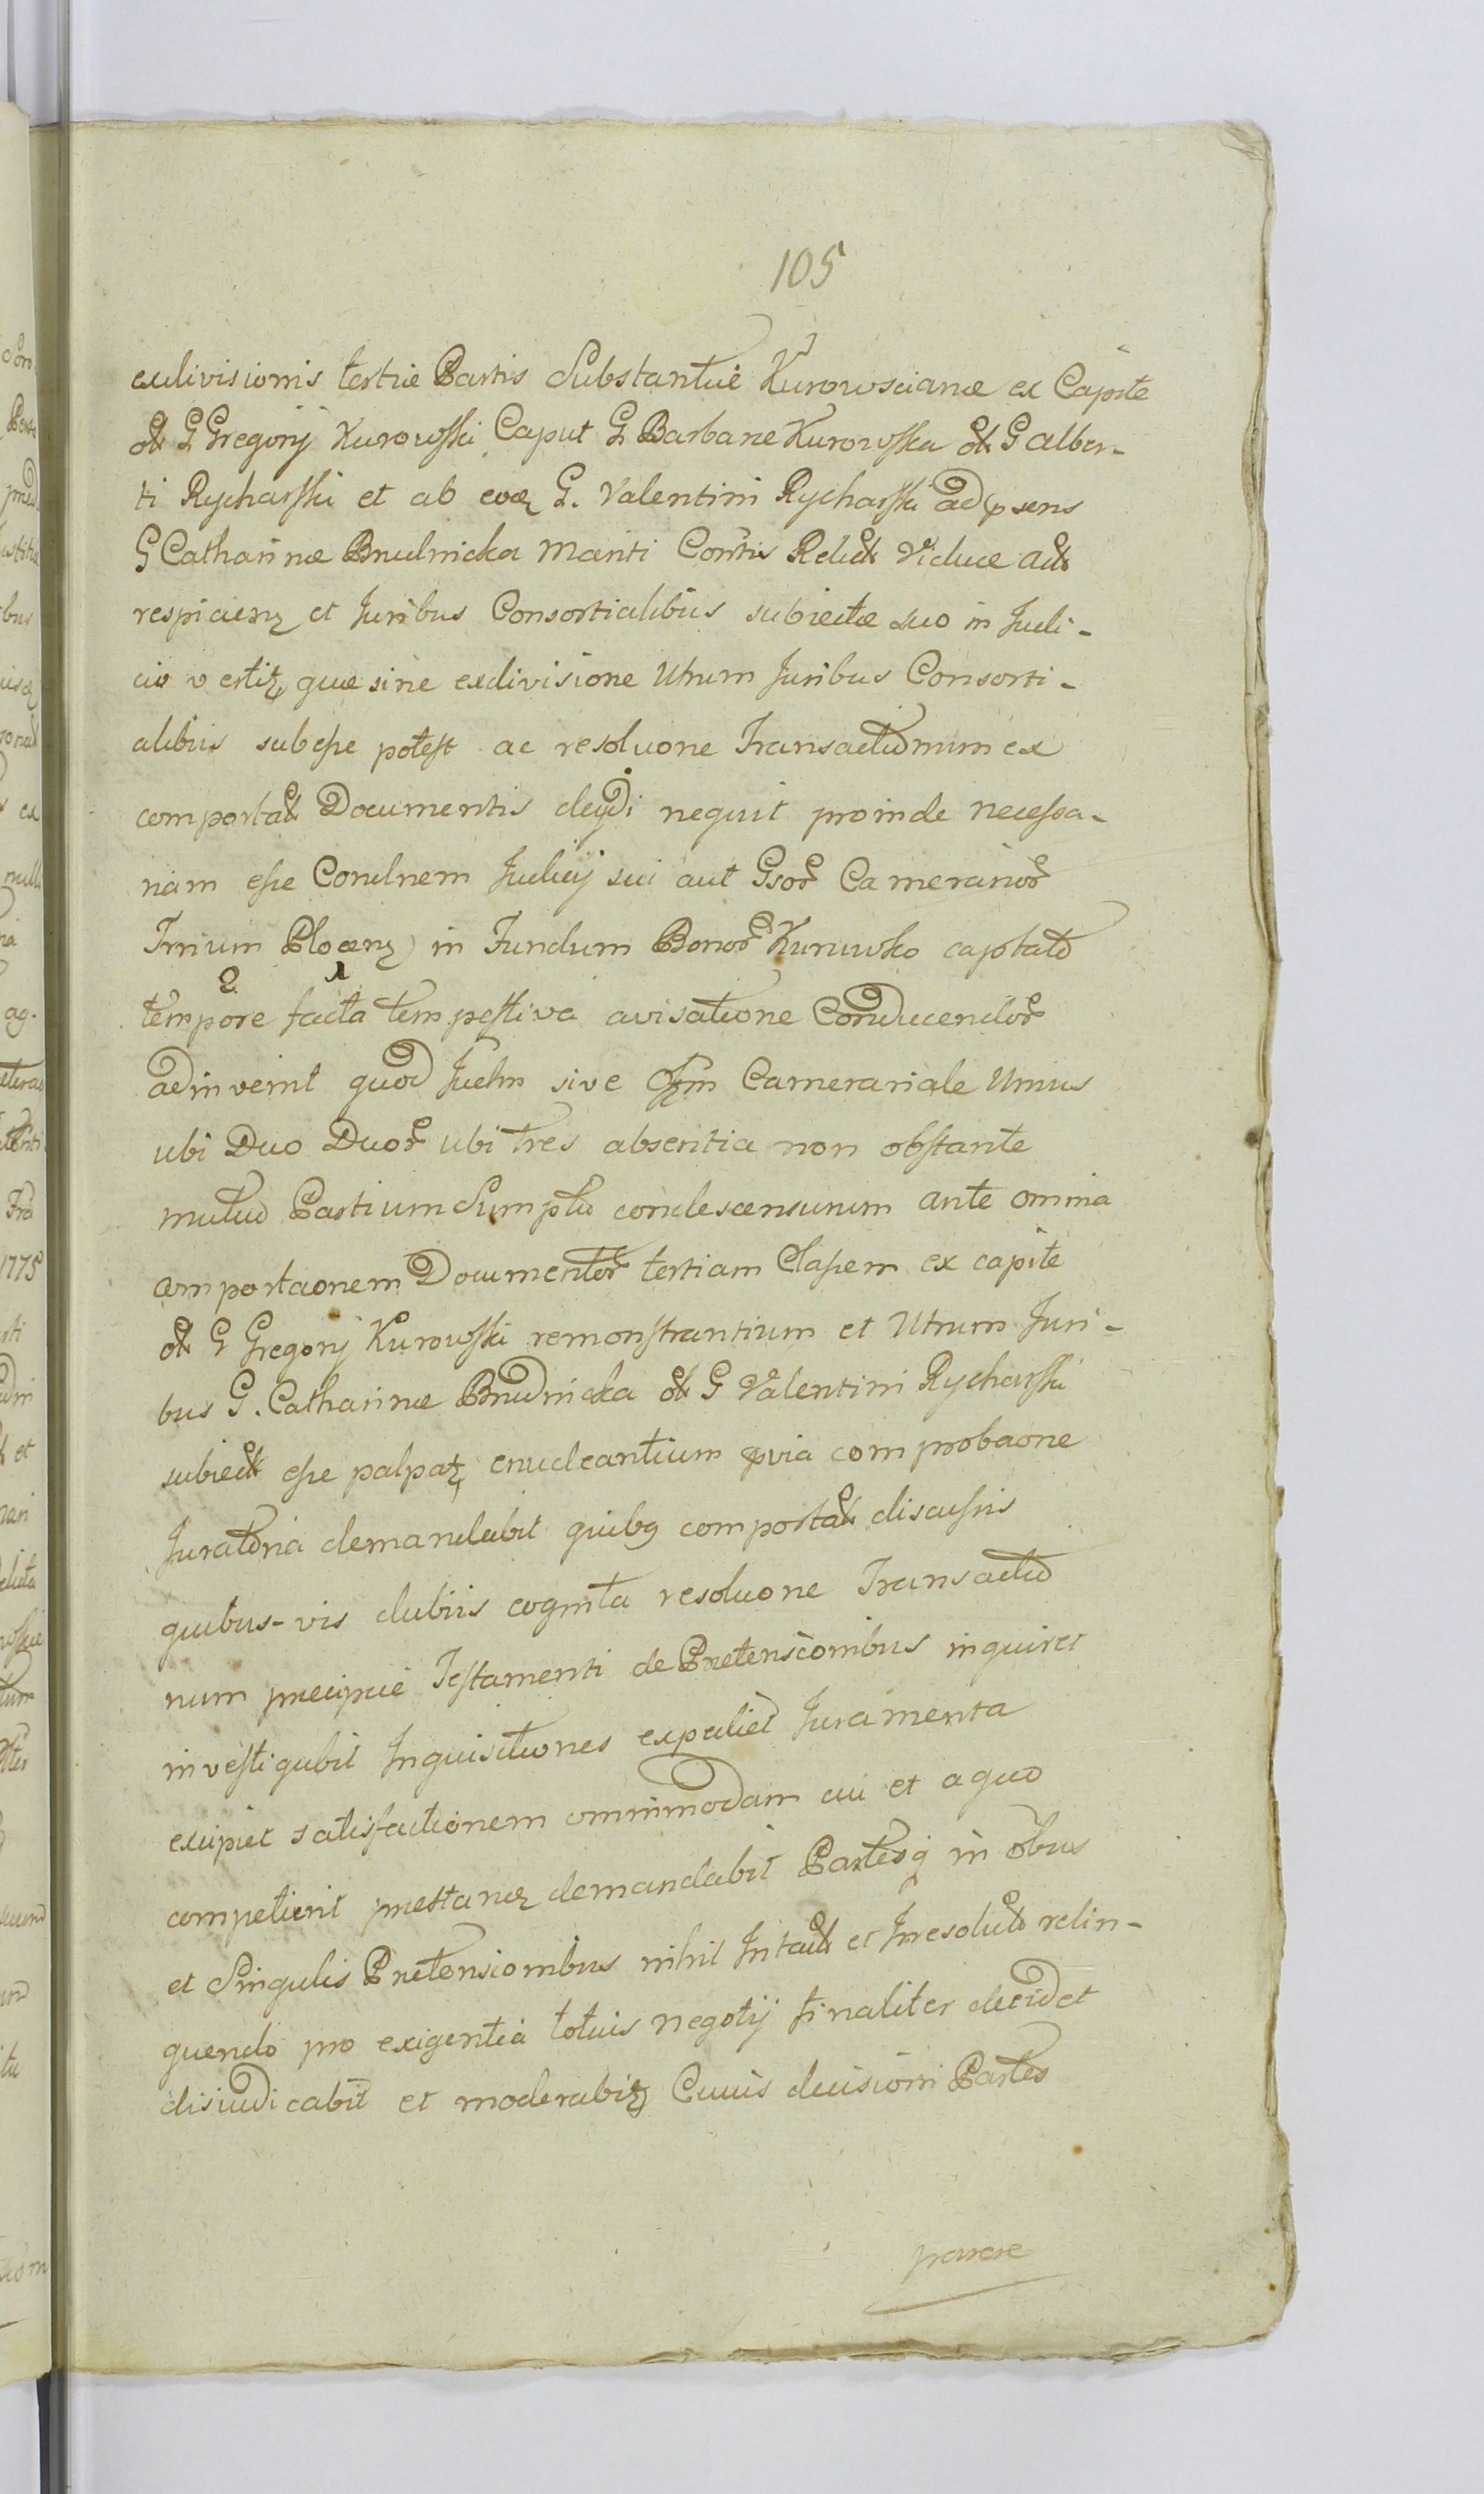 105
exdivisionis tertiæ Partis Substantiæ Kurowscianæ ex Capite
ol G Gregorij Kurowski Caput G Barbaræ Kurowska ol G Alber-
ti Rycharski et ab eoæ G. Valentini Rycharski ad psens
G Catharinæ Brudnicka Mariti Contis Relict Viduæ act
respicienz et Juribus Consortialibus subiectæ suo in Judi-
cio vertitz quæ sine exdivisione Utrum Juribus Consorti-
alibus subesse potest ac resoluone Transactionum ex
comportat Documentis decidi nequit proinde necessa-
riam esse Condnem Judicij sui aut Gsor Camerarior
Trrium Plocenz in Fundum Bonor Kurowko captato
tempore facta tempestiva avisatione Conducendor
adinvenit quod Judm sive Offm Camerariale Unius
ubi Duo Duor ubi tres absentia non obstante
mutuo Partium Sumptu condescensurum ante omnia
comportaonem Documentor tertiam Classem ex capite
ol G Gregorij Kurowski remonstrantium et Utrum Juri-
bus G. Catharinæ Brudnicka ol G Valentini Rycharski
subiect esse palpatz enucleantium pvia comprobaone
Juratoria demandabit quibq comportat discussis
quibus-vis dubiis cognita resoluone Transactio
num præcipue Testamenti de Prætensionibus inquiret
investigabit Inquisitiones expediet Juramenta
excipiet satisfactionem omnimodam cui et a quo
competierit præstanz demandabit Partesq in obus
et Singulis Prætensionibus nihil Intact et Irresolut relin-
quendo pro exigentia totius negotij finaliter decidet
disiudicabit et moderabitz Cuius decisioni Partes
parere